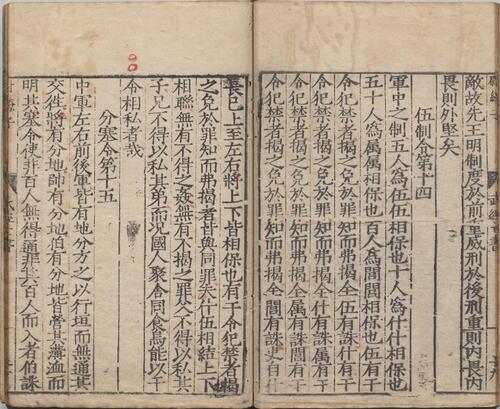 敵故先王明制度於前重威刑於後刑重則內畏內
畏則外堅矣
伍制令第十四
軍中之制五人爲伍伍相保也十人爲什什相保也
五十人爲属属相保也百人爲閭閭相保也伍有干
令犯禁者揭之免於罪知而弗揭全伍有誅什有干
令犯禁者揭之免於罪知而弗揭全什有誅属有干
令犯禁者揭之免於罪知而弗揭全属有誅閭有干
令犯禁者揭之免於罪知而弗揭全閭有誅吏自什
長已上至左右將上下皆相保也有干令犯禁者揭
之免於罪知而弗揭者皆與同罪夫什伍相結上下
相聯無有不得之姦無有不揭之罪父不得以私其
子兄不得以私其弟而況國人聚舍同食烏能以干
令相私者哉
分塞令第十五
中軍左右前後軍皆有地分方之以行垣而無通其
交往將有分地帥有分地伯有分地皆營其溝洫而
明其塞令使非百人無得通非其百人而入者伯誅